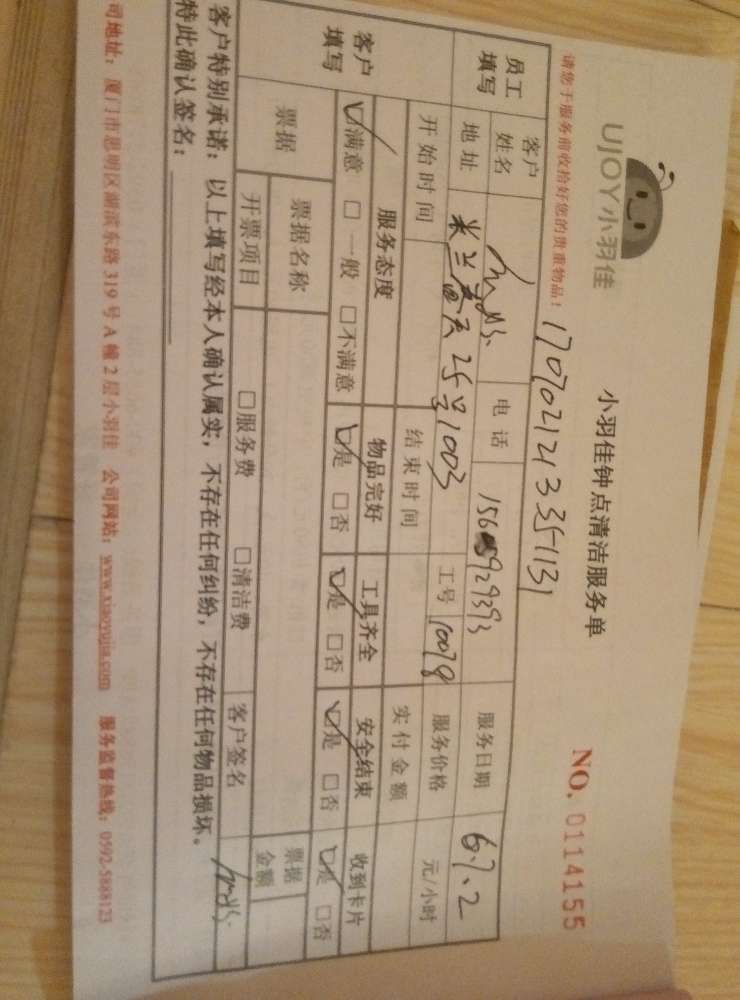 UJOY小羽佳
小羽佳钟点清洁服务单
NO. 0114155
请您于服务前收拾好您的贵重物品！
1707021213351131
员工填写
客户姓名
电话
服务日期 6.7.2
地址 米兰春天25号1003
工号 10078
服务价格 元/小时
开始时间
结束时间
实付金额
客户填写
服务态度
物品完好
工具齐全
安全结束
收到卡片
☑满意 □一般 □不满意
☑是 □否
☑是 □否
☑是 □否
☑是 □否
票据
票据名称
票据金额
开票项目
□服务费 □清洁费
客户签名
客户特别承诺：以上填写经本人确认属实，不存在任何纠纷，不存在任何物品损坏。
特此确认签名：
司地址：厦门市思明区湖滨东路319号A幢2层小羽佳 公司网站：www.xiaoyujia.com 服务监督热线：0592-5888123